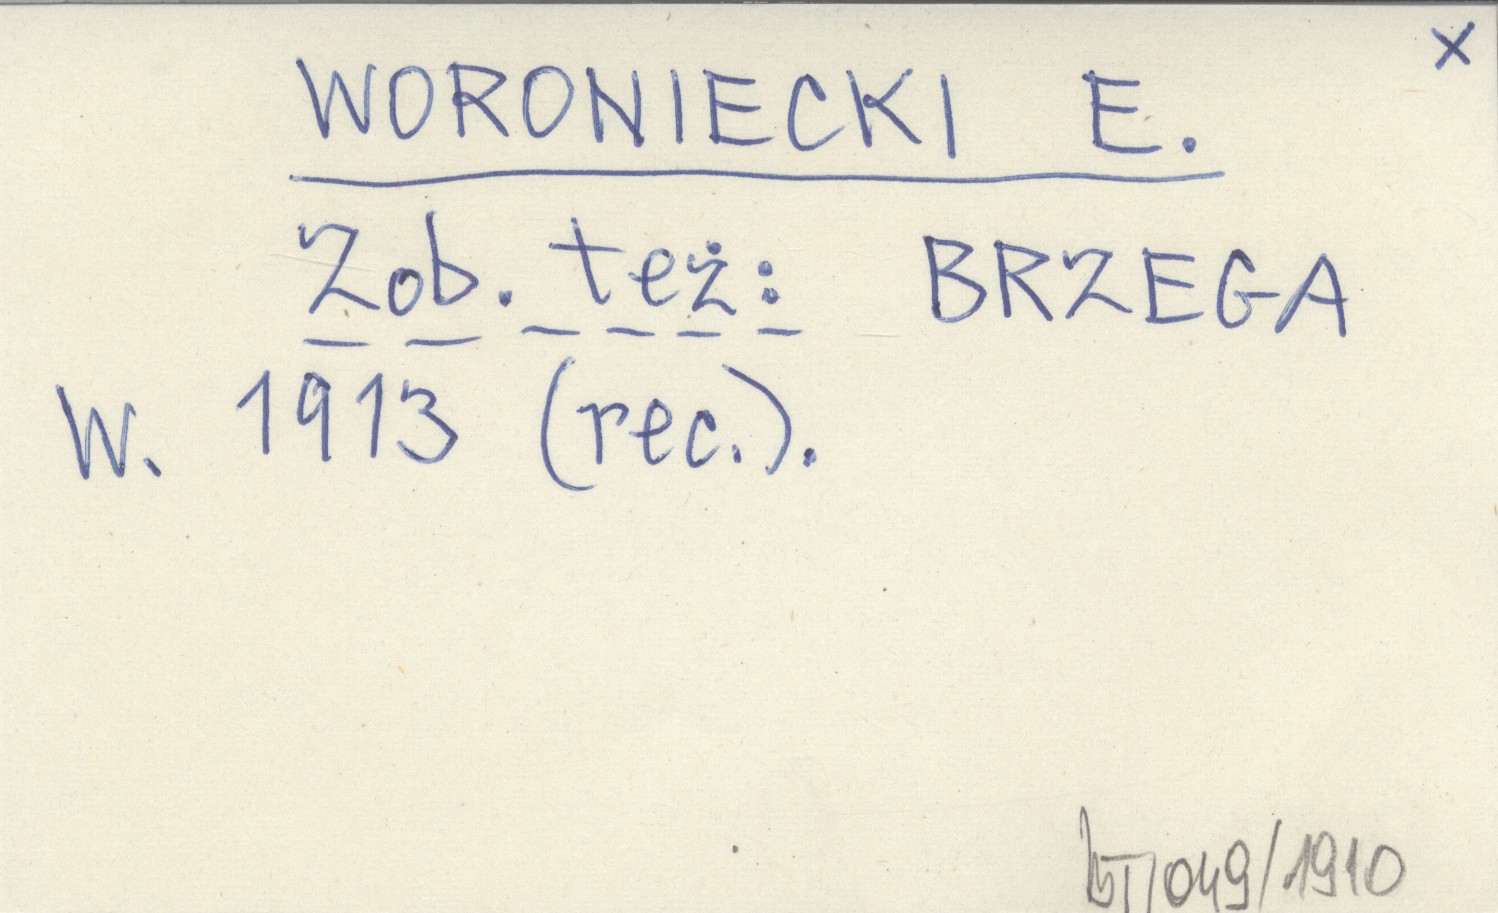 x
WORONIECKI E.
Zob. też: BRZEGA
W. 1913 (rec.).
049/1910